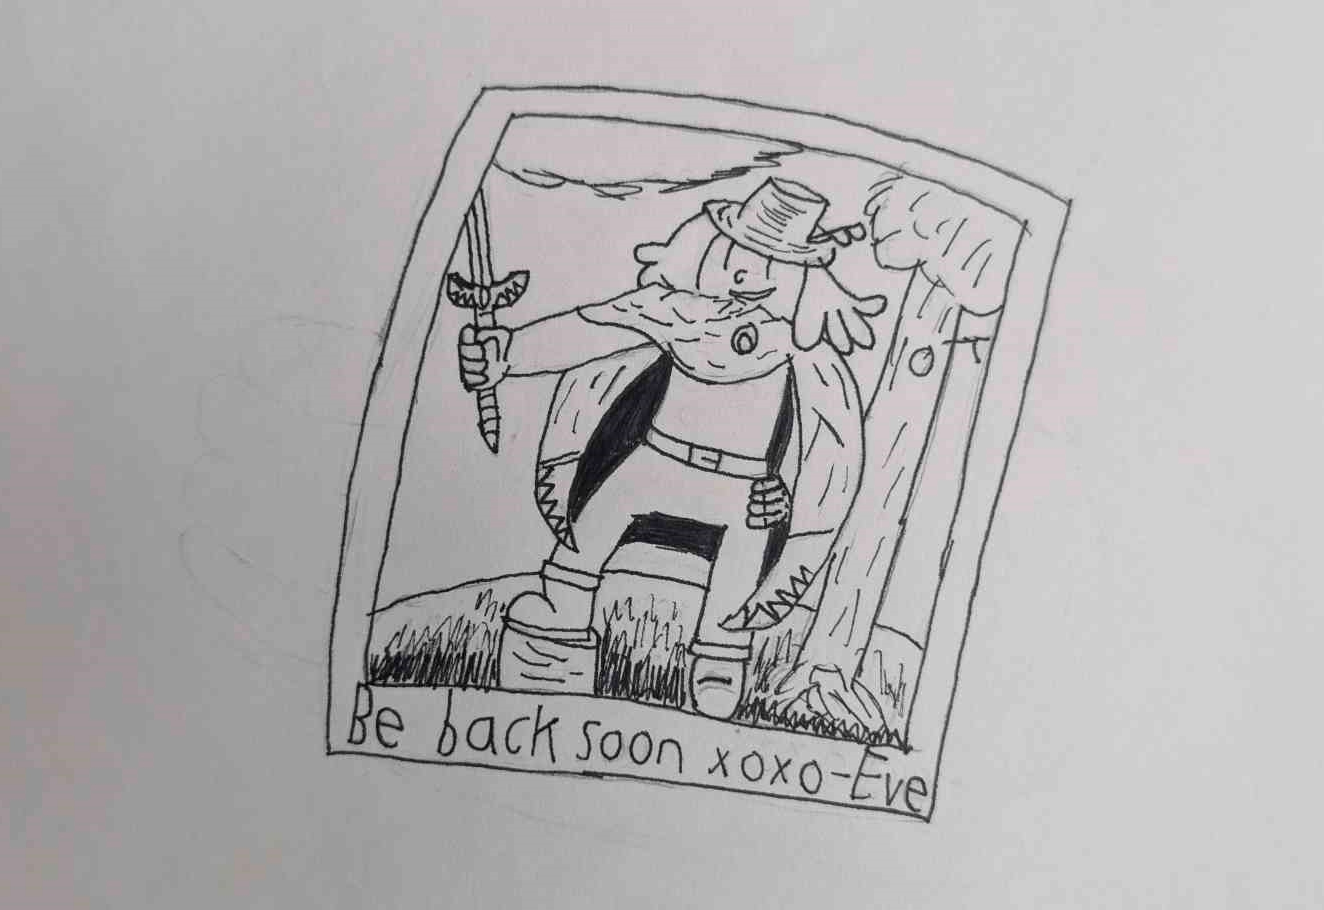 Be back soon xoxo-Eve